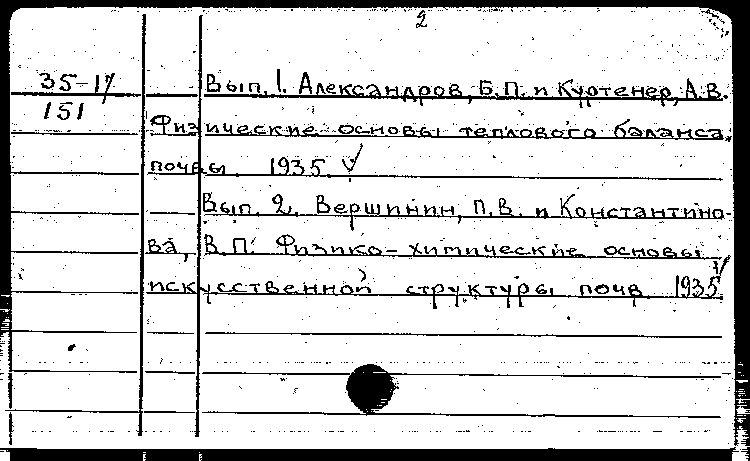 2
35-17
151
Вып. 1. Александров, Б.П. и Куртенер, А.В.
Физические основы теплового баланса
почвы. 1935.
Вып. 2. Вершинин, П.В. и Константино-
ва, В.П. Физико-химические основы
искусственной структуры почв. 1935.